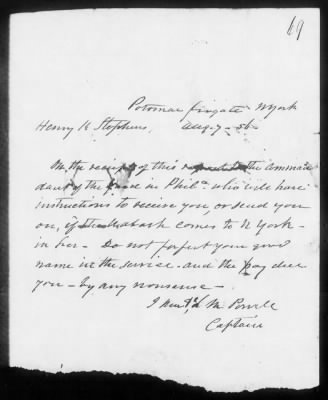 69
Potomac frigate N York
Henry H Stephens, Aug. 7 - 56 -
On the receipt of this the comman
dant of the in Phila. who will have
instructions to receive you, or send you
on, if the Wabash comes to N York -
in her - Do not forfeit your good
name in the service - and the pay due
you - by any nonsense -
L. M. Powell
Captain